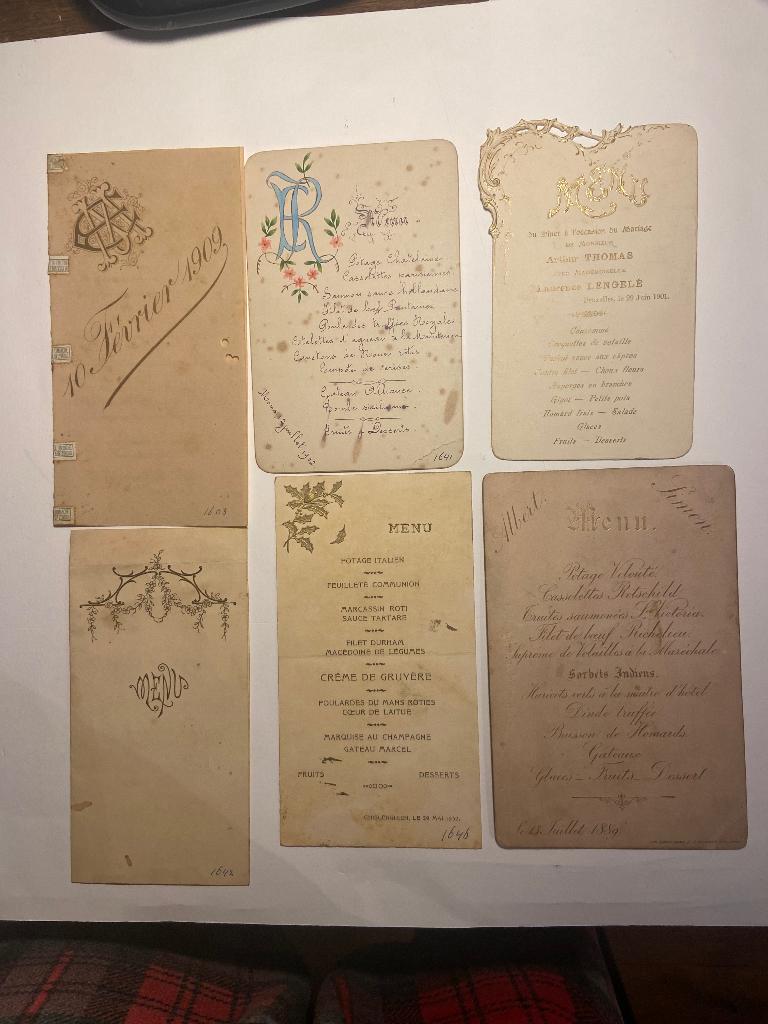 10 Février 1909
1603
R
Menu
Potage Chatelaine
Cassolettes parisiennes
Saumon sauce hollandaise
Filet de bœuf
Royale
à la
Château
Fruits & Desserts
1641
MENU
Du Dîner à l'occasion du Mariage
de Monsieur
Arthur THOMAS
avec Mademoiselle
LENGELÉ
Bruxelles, le 29 Juin 1901.
Consommé
Croquettes de volaille
sauce aux câpres
Choux fleurs
Asperges en branches
Gigot — Petits pois
Homard frais — Salade
Glaces
Fruits — Desserts
MENU
1642
MENU
POTAGE ITALIEN
FEUILLETÉ COMMUNION
MARCASSIN ROTI
SAUCE TARTARE
FILET DURHAM
MACÉDOINE DE LÉGUMES
CRÈME DE GRUYÈRE
POULARDES DU MANS RÔTIES
CŒUR DE LAITUE
MARQUISE AU CHAMPAGNE
GATEAU MARCEL
FRUITS DESSERTS
LE 29 MAI
1646
Albert. Simon.
Menu.
Potage Velouté.
Cassolettes Rotschild.
Truites saumonées St Victoria.
Filet de bœuf Richelieu.
Supreme de Volailles à la Maréchale.
Sorbets Indiens.
Haricots verts à la maître d'hôtel.
Dinde truffée
Buisson de Homards.
Gateaux
Glaces – Fruits – Dessert
le 13 Juillet 1889